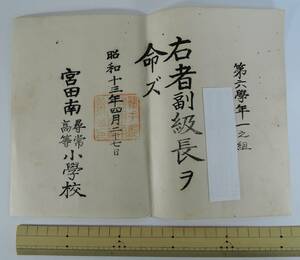 第六學年一之組
右者副級長ヲ
命ズ
昭和十三年四月二十七日
宮田南尋常高等小學校